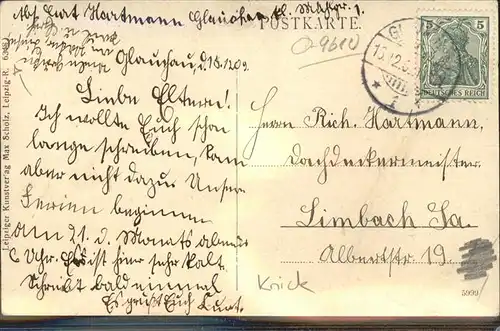 Abs. Curt Hartmann Glauchau kl. Mühlstr. 1.
POSTKARTE.
9610
5 5
DEUTSCHES REICH
Glauchau, d. 15.12.09.
Liebe Eltern!
Ich wollte Euch schon
lange schreiben, kam
aber nicht dazu. Unsere
Ferien beginnen
am 21. d. Monats abends
6 Uhr. Es ist hier sehr kalt.
Schreibt bald einmal
Es grüßt Euch Curt.
Herrn Rich. Hartmann,
Dachdeckermeister
Limbach Sa.
Albertstr 19.
Knick
5999
Leipziger Kunstverlag Max Scholz, Leipzig-R.